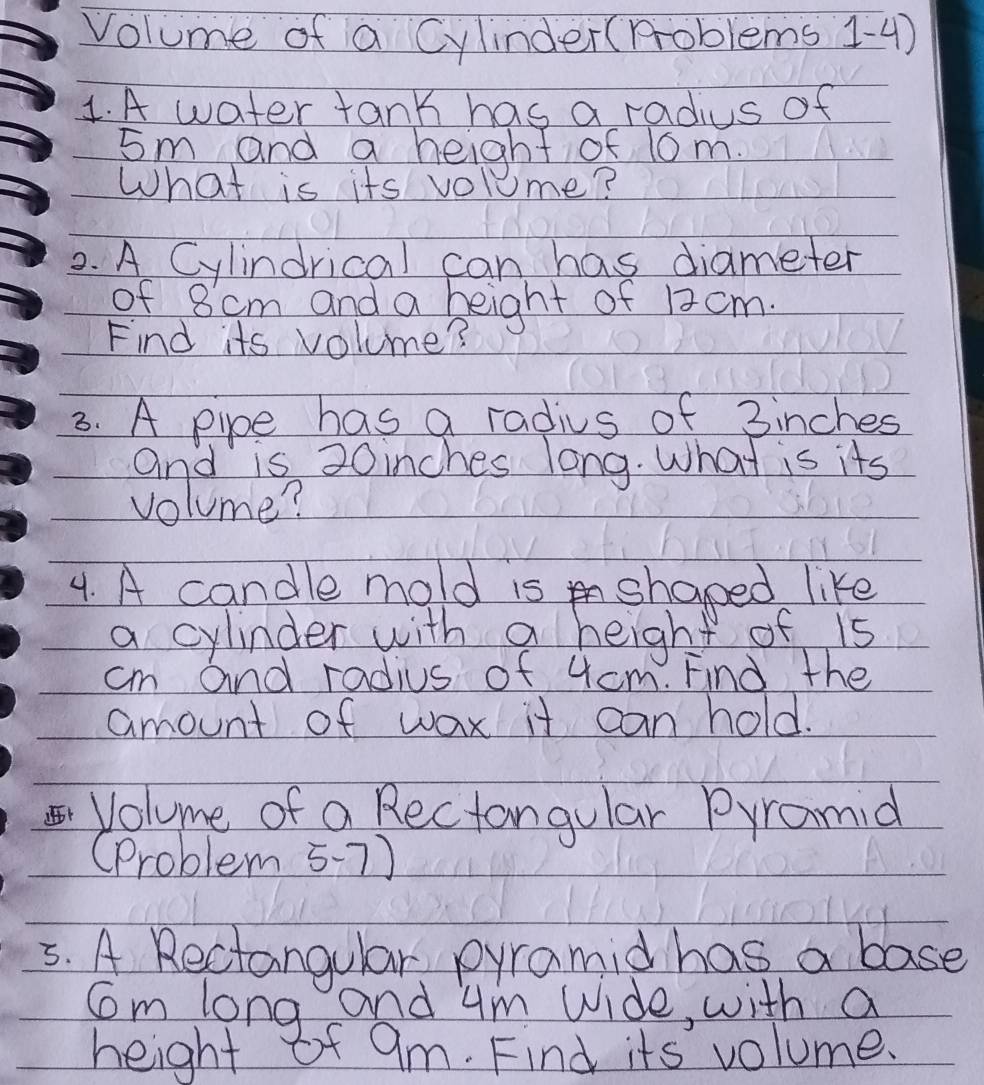 Volume of a Cylinder (Problems 1-4)
1. A water tank has a radius of
5m and a height of 10 m.
What is its volume?
2. A Cylindrical can has diameter
of 8cm and a height of 12cm.
Find its volume?
3. A pipe has a radius of 3inches
and is 20inches long. What is its
volume?
4. A candle mold is shaped like
a cylinder with a height of 15
cm and radius of 4cm. Find the
amount of wax it can hold.
Volume of a Rectangular Pyramid
(Problem 5-7)
5. A Rectangular pyramid has a base
6m long and 4m wide, with a
height of 9m. Find its volume.